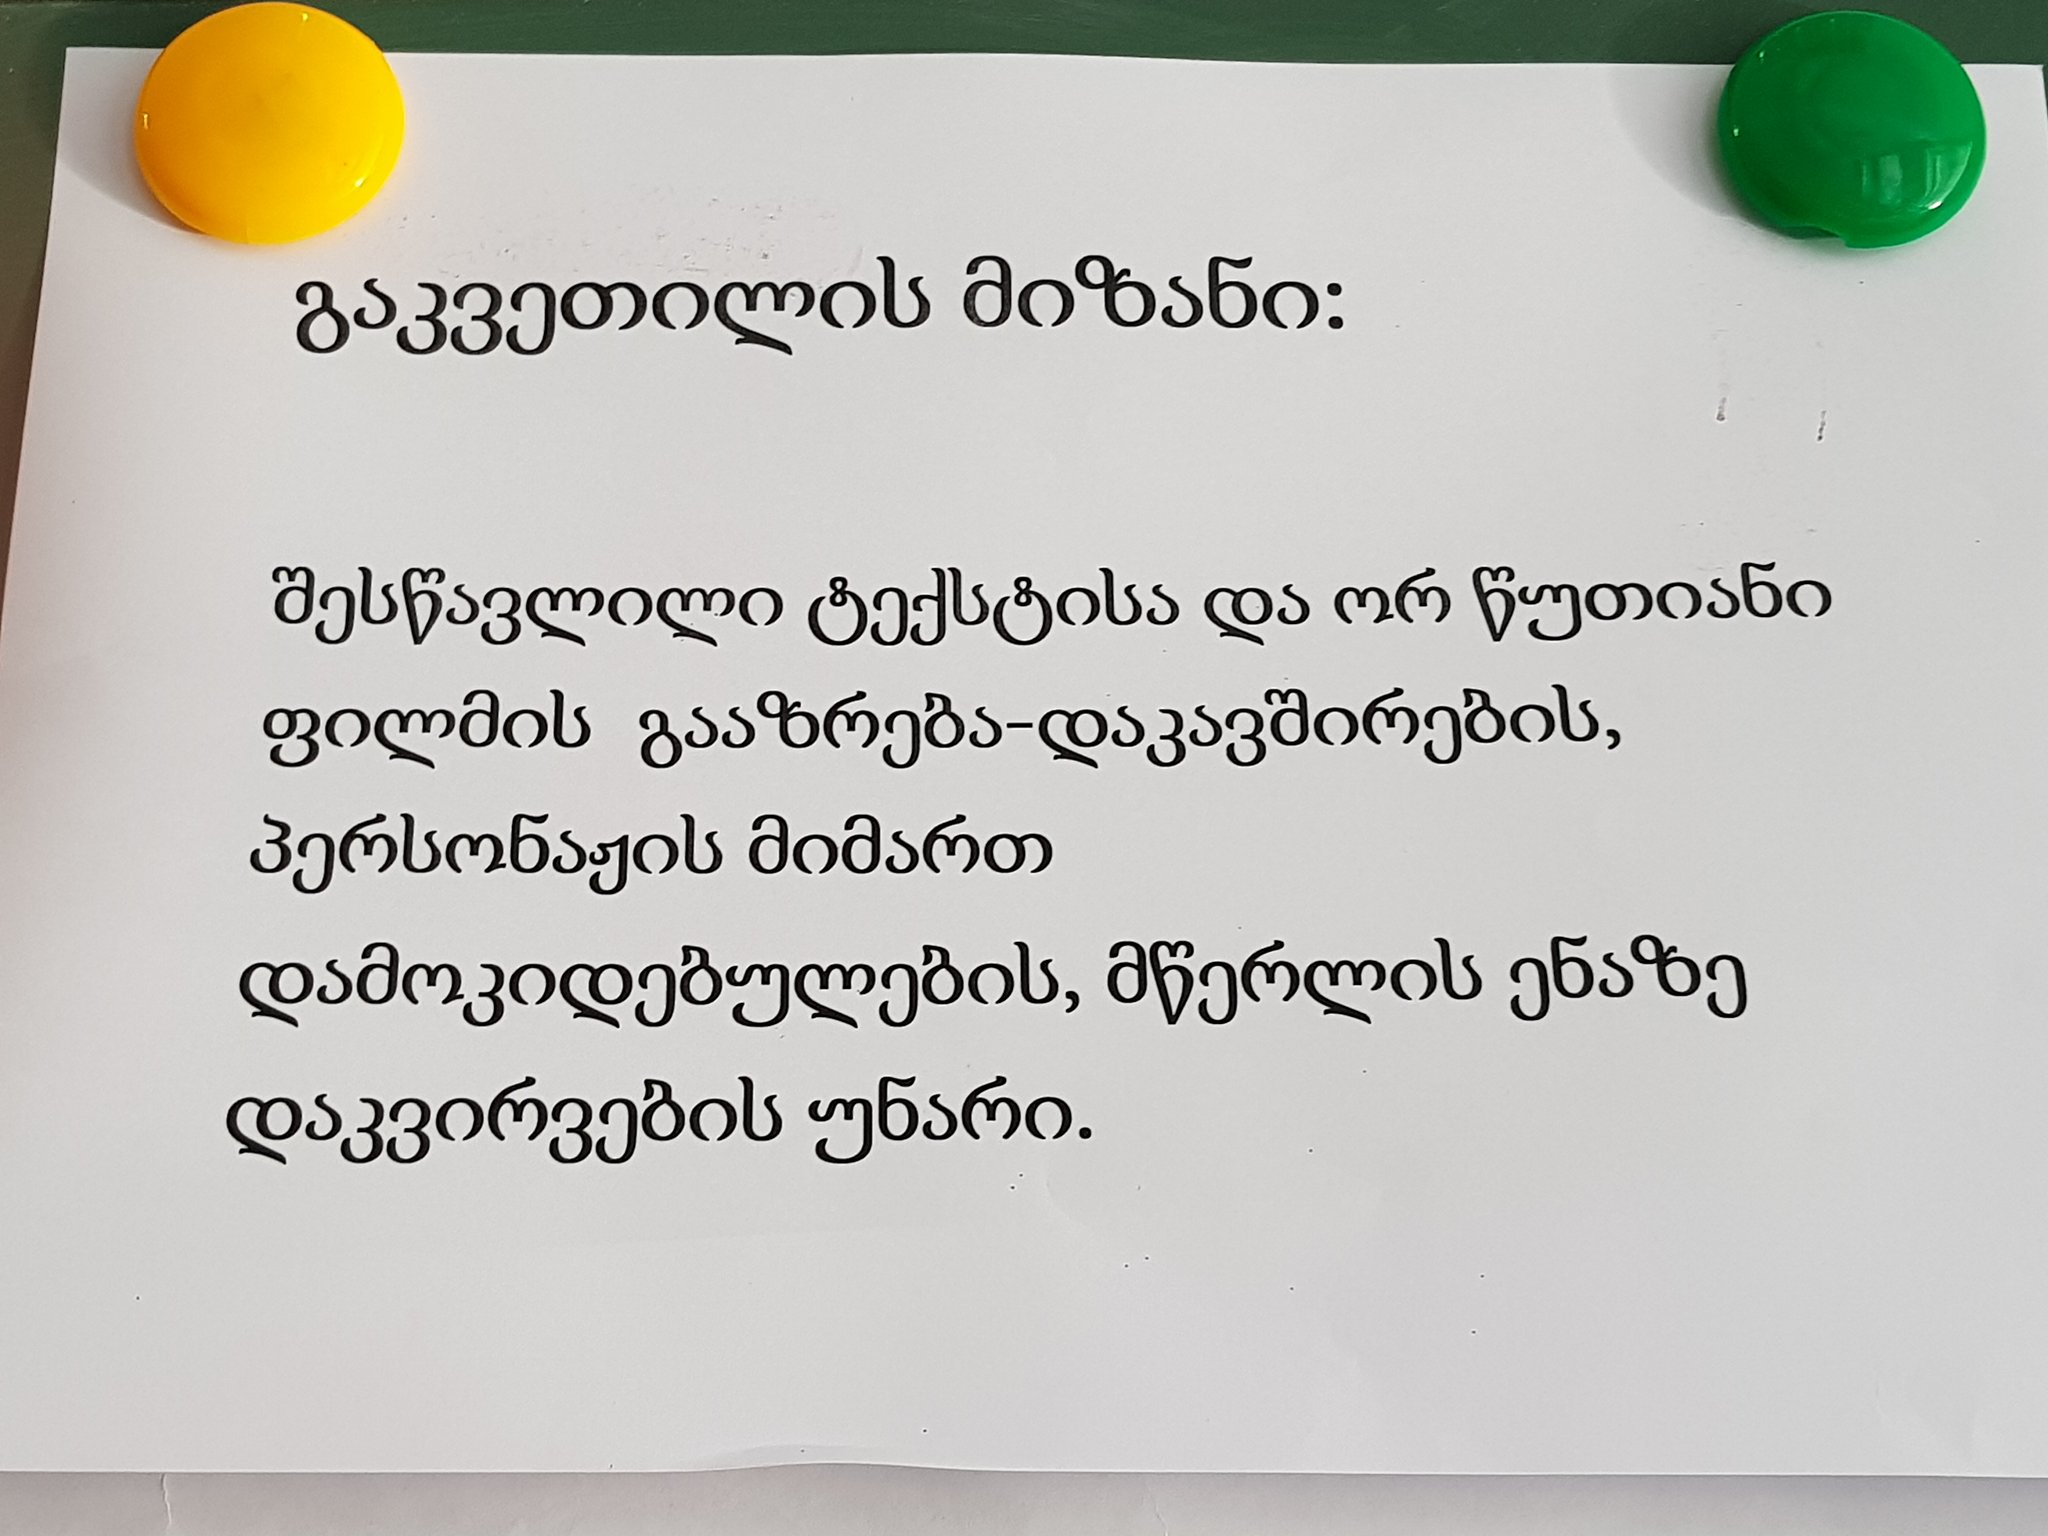 გაკვეთილის მიზანი:
შესწავლილი ტექსტისა და ორ წუთიანი
ფილმის გააზრება-დაკავშირების,
პერსონაჟის მიმართ
დამოკიდებულების, მწერლის ენაზე
დაკვირვების უნარი.